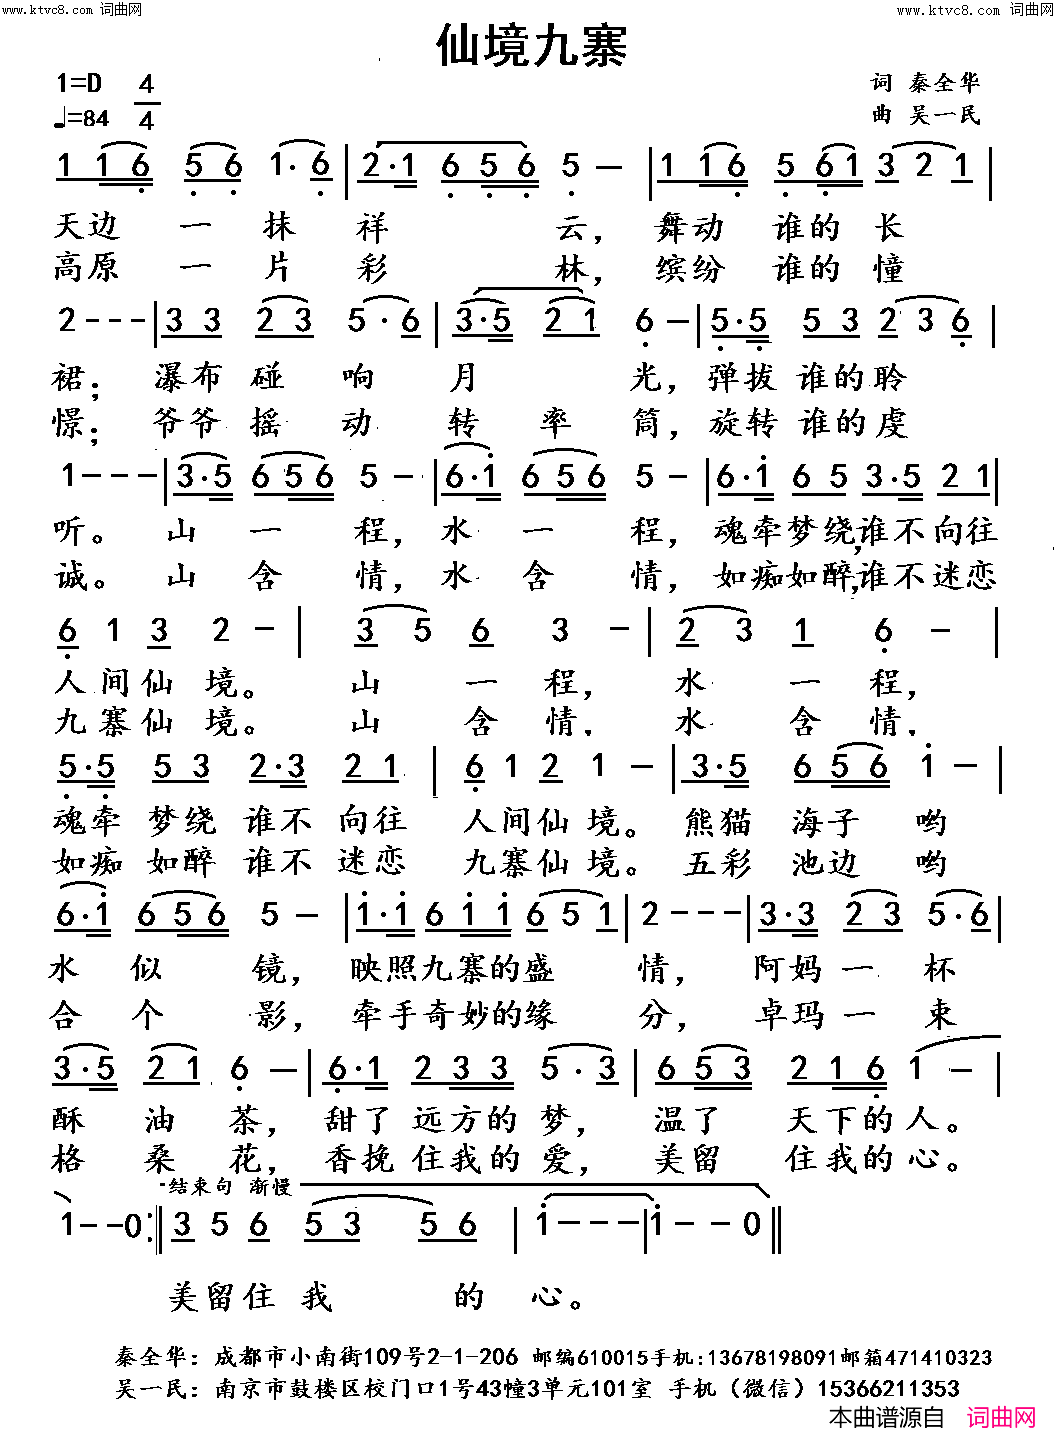 www.ktvc8.com 词曲网 www.ktvc8.com 词曲网
仙境九寨
1=D 4/4 词 秦全华
♩=84 曲 吴一民
1 1 6 5 6 1· 6 | 2·1 6 5 6 5 – | 1 1 6 5 6 1 3 2 1 |
天边 一 抹 祥 云, 舞动 谁的 长
高原 一 片 彩 林, 缤纷 谁的 憧
2 - - - | 3 3 2 3 5 · 6 | 3·5 2 1 6 – | 5·5 5 3 2 3 6 |
裙; 瀑布 碰 响 月 光, 弹拨 谁的 聆
憬; 爷爷 摇 动 转 率 筒, 旋转 谁的 虔
1 - - - | 3·5 6 5 6 5 – | 6·1 6 5 6 5 – | 6·1 6 5 3·5 2 1 |
听。 山 一 程, 水 一 程, 魂牵梦绕,谁不向往
诚。 山 含 情, 水 含 情, 如痴如醉,谁不迷恋
6 1 3 2 – | 3 5 6 3 – | 2 3 1 6 – |
人间仙 境。 山 一 程, 水 一 程,
九寨仙 境。 山 含 情, 水 含 情,
5·5 5 3 2·3 2 1 | 6 1 2 1 – | 3·5 6 5 6 1 – |
魂牵 梦绕 谁不 向往 人间仙 境。 熊猫 海子 哟
如痴 如醉 谁不 迷恋 九寨仙 境。 五彩 池边 哟
6·1 6 5 6 5 – | 1·1 6 1 1 6 5 1 | 2 - - - | 3·3 2 3 5·6 |
水 似 镜, 映照九寨的盛 情, 阿妈 一 杯
合 个 影, 牵手奇妙的缘 分, 卓玛 一 束
3·5 2 1 6 – | 6·1 2 3 3 5 · 3 | 6 5 3 2 1 6 1 – |
酥 油 茶, 甜了 远方的 梦, 温了 天下的人。
格 桑 花, 香挽 住我的 爱, 美留 住我的心。
结束句 渐慢
1 - - 0 :‖ 3 5 6 5 3 5 6 | 1 - - - | 1 - - 0 ‖
美留住 我 的 心。
秦全华: 成都市小南街109号2-1-206 邮编610015手机:13678198091邮箱471410323
吴一民: 南京市鼓楼区校门口1号43幢3单元101室 手机 (微信) 15366211353
本曲谱源自 词曲网